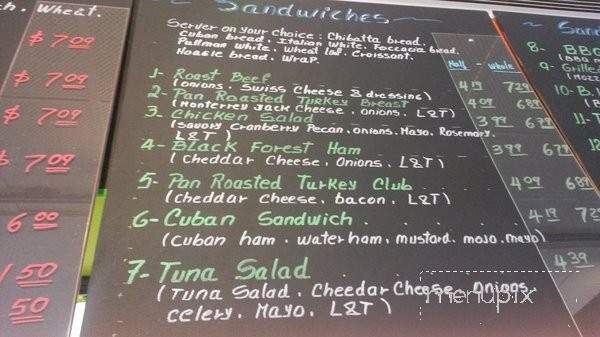 Sandwiches
Server on your choice : Chibatta bread.
Cuban bread. Italian White. Foccacia bread.
Pullman White. Wheat loaf. Croissant.
Hoagie bread. Wrap.
Half - Whole
1- Roast Beef
(Onions. Swiss Cheese & dressing)
2- Pan Roasted Turkey Breast
(Monterrey Jack Cheese. onions. L&T)
3- Chicken Salad
(Savory Cranberry Pecan. Onions. Mayo. Rosemary.
L&T)
4- Black Forest Ham
(Cheddar Cheese. Onions. L&T)
5- Pan Roasted Turkey Club
(Cheddar Cheese. bacon. L&T)
6- Cuban Sandwich
(Cuban ham. water ham. mustard. mojo. mayo)
7- Tuna Salad
(Tuna Salad. Cheedar Cheese. Onions.
Celery. Mayo. L&T)
4 19
4 09
3 99
3 99
4 09
4 19
4 39
Wheat.
$ 7 09
$ 7 09
$ 7 09
$ 7 09
6 00
50
50
8- BBQ
9- Grilled
10- B.
menupix